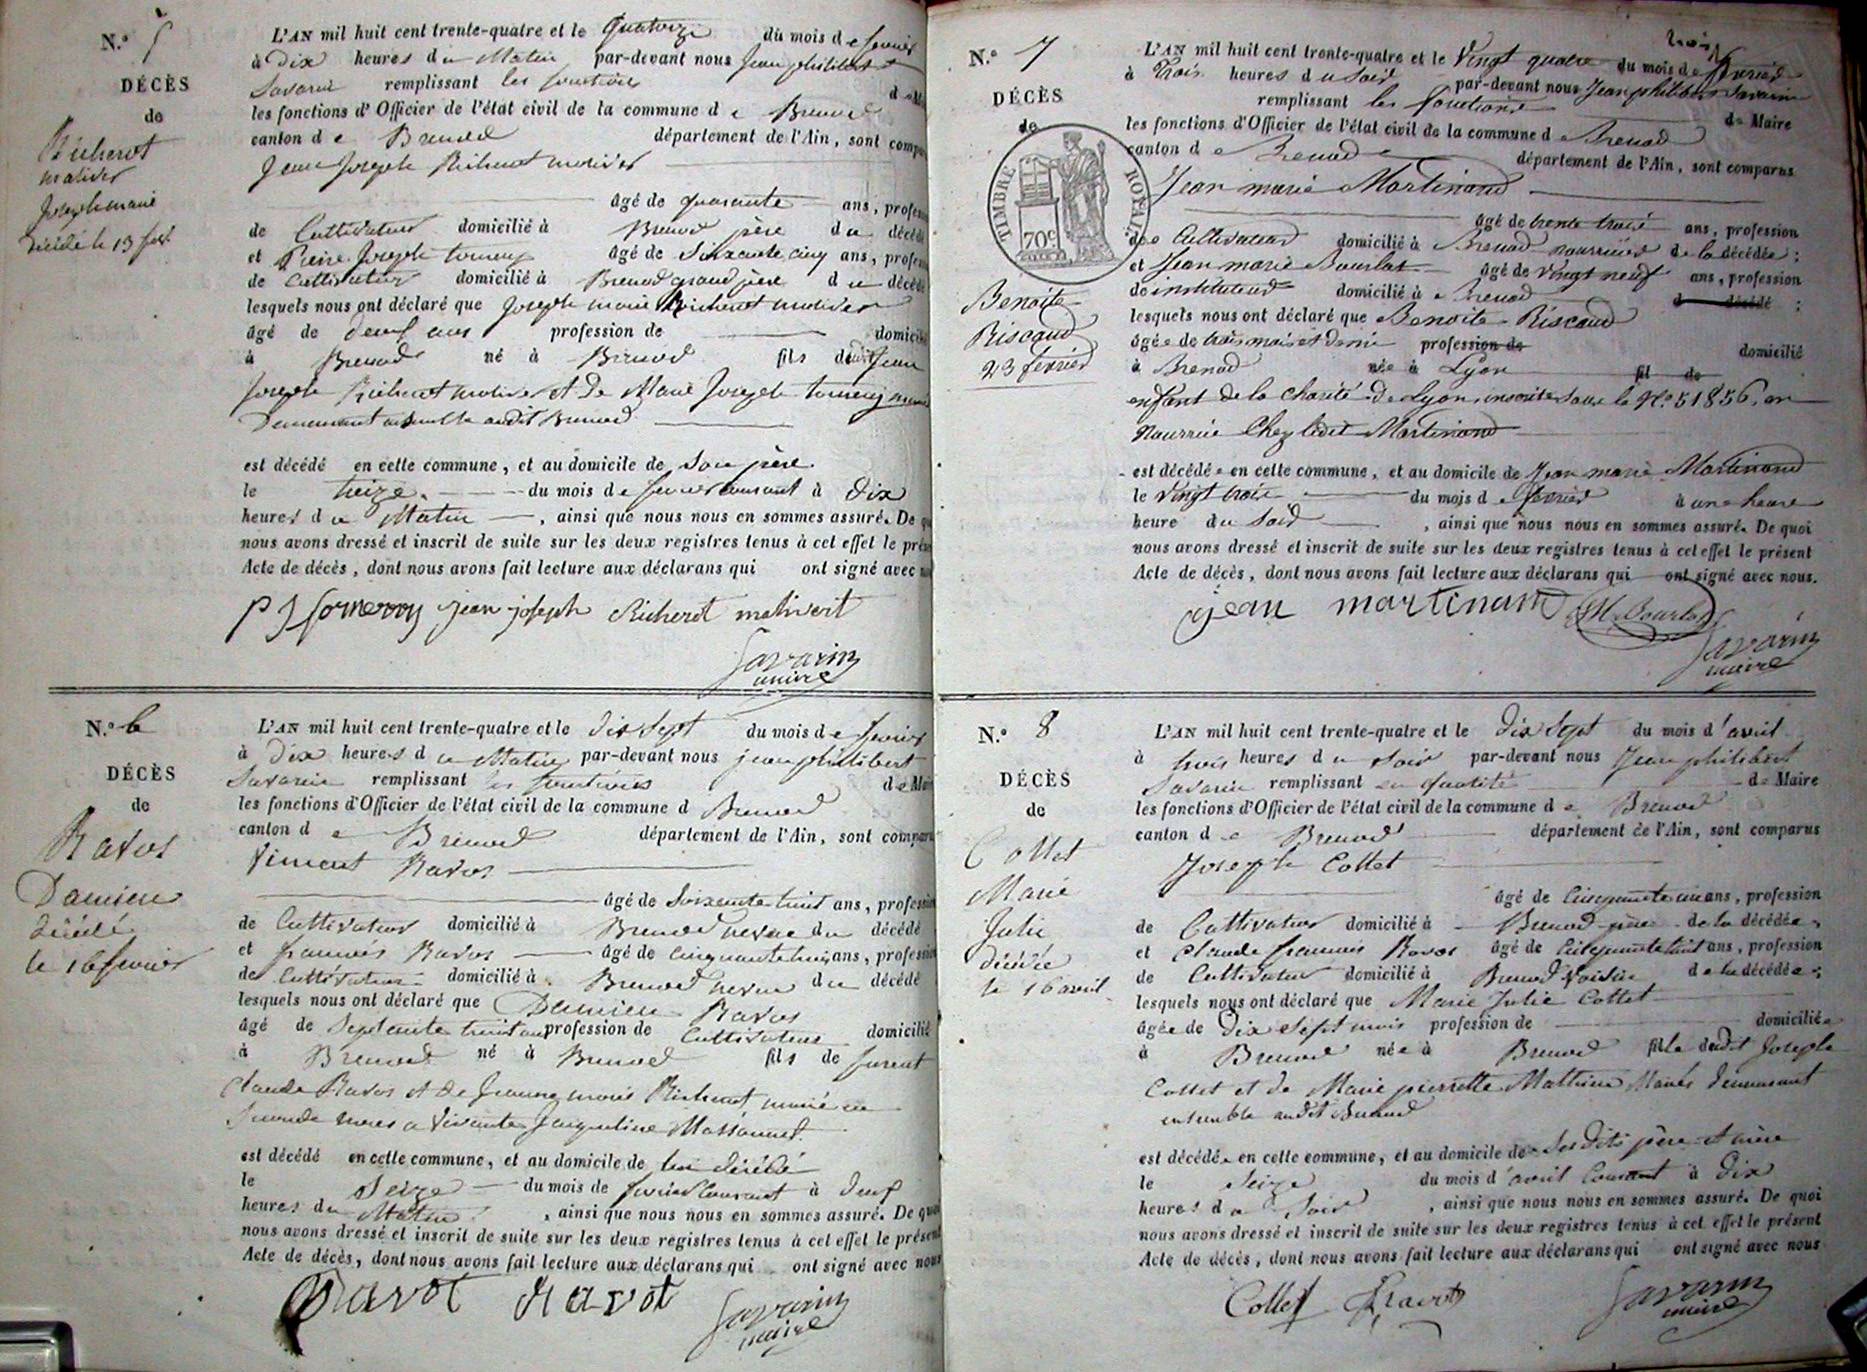 N.º 5
DÉCÈS
de
Richerot
mativet
Joseph marie
Décédé le 13 fevr
L'AN mil huit cent trente-quatre et le Quatorze du mois de fevrier
à Dix heures du Matin par-devant nous Jean philibert
Savarin remplissant les fonctions d
les fonctions d'Officier de l'état civil de la commune de Brenod
canton de Brenod département de l'Ain, sont
Jean Joseph Richerot mativet
âgé de quarante ans,
de Cultivateur domicilié à Brenod père du
et Pierre Joseph âgé de Soixante cinq ans,
de Cultivateur domicilié à Brenod grand père du
lesquels nous ont déclaré que Joseph marie Richerot mativet
âgé de deux ans profession de
à Brenod né à Brenod fils dudit Jean
Joseph Richerot mativet et de Marie Joseph
Demeurant ensemble audit Brenod
est décédé en cette commune, et au domicile de Son père
le treize du mois de fevrier courant à Dix
heures du Matin, ainsi que nous nous en sommes assuré. De
nous avons dressé et inscrit de suite sur les deux registres tenus à cet effet le
Acte de décès, dont nous avons fait lecture aux déclarans qui ont signé avec
jean joseph Richerot mativert
Savarin
maire
N.º 6
DÉCÈS
de
Ravot
Damien
Décédé
le 16 fevrier
L'AN mil huit cent trente-quatre et le dix Sept du mois de fevrier
à Dix heures du Matin par-devant nous jean philibert
Savarin remplissant les fonctions de
les fonctions d'Officier de l'état civil de la commune d Brenod
canton de Brenod département de l'Ain, sont
Vincent Ravot
âgé de Soixante huit ans,
de Cultivateur domicilié à Brenod neveu du décédé
et francois Ravot âgé de cinquante ans,
de Cultivateur domicilié à Brenod neveu du décédé
lesquels nous ont déclaré que Damien Ravot
âgé de Septante huit ans profession de Cultivateur domicilié
à Brenod né à Brenod fils de furent
Claude Ravot et de Jeanne marie Richerot marié en
Seconde noces a vivante Jacqueline
est décédé en cette commune, et au domicile de lui décédé
le Seize du mois de fevrier Courant à Neuf
heures du Matin, ainsi que nous nous en sommes assuré. De
nous avons dressé et inscrit de suite sur les deux registres tenus à cet effet le présent
Acte de décès, dont nous avons fait lecture aux déclarans qui ont signé avec nous
Ravot Ravot
Savarin
maire
N.º 7
DÉCÈS
de
TIMBRE ROYAL
70c
Benoite
Riscaud
23 fevrier
L'AN mil huit cent trente-quatre et le Vingt quatre du mois de fevrier
à Trois heures du Soir par-devant nous Jean philibert Savarin
remplissant les fonctions de Maire
les fonctions d'Officier de l'état civil de la commune de Brenod
canton de Brenod département de l'Ain, sont comparus
Jean marie Martinand
âgé de trente trois ans, profession
de Cultivateur domicilié à Brenod nourricier de la décédée;
et Jean marie Bourlot âgé de vingt neuf ans, profession
de instituteur domicilié à Brenod d décédé;
lesquels nous ont déclaré que Benoite Riscaud
âgée de trois mois et demi profession de domicilié
à Brenod née à Lyon fil de
enfant de la charité de Lyon, inscrite sous le N.º 51856, en
Nourrice Chez ledit Martinand
est décédée en cette commune, et au domicile de Jean marie Martinand
le vingt trois du mois de fevrier à une heure
heure du Soir, ainsi que nous nous en sommes assuré. De quoi
nous avons dressé et inscrit de suite sur les deux registres tenus à cet effet le présent
Acte de décès, dont nous avons fait lecture aux déclarans qui ont signé avec nous.
jean martinam Bourlot
Savarin
maire
N.º 8
DÉCÈS
de
Collet
Marie
Julie
Décédée
le 16 avril
L'AN mil huit cent trente-quatre et le dix Sept du mois d'avril
à trois heures du Soir par-devant nous Jean philibert
Savarin remplissant en qualité de Maire
les fonctions d'Officier de l'état civil de la commune de Brenod
canton de Brenod département de l'Ain, sont comparus
Joseph Collet
âgé de Cinquante un ans, profession
de Cultivateur domicilié à Brenod père de la décédée,
et Claude francois Ravot âgé de Cinquante huit ans, profession
de Cultivateur domicilié à Brenod Voisin de la décédée;
lesquels nous ont déclaré que Marie Julie Collet
âgée de Dix Sept mois profession de domiciliée
à Brenod née à Brenod fille dudit Joseph
Collet et de Marie pierrette Mathieu Mariés demeurant
ensemble audit Brenod
est décédée en cette commune, et au domicile de Sesdits père et mère
le Seize du mois d'avril Courant à Dix
heures du Soir, ainsi que nous nous en sommes assuré. De quoi
nous avons dressé et inscrit de suite sur les deux registres tenus à cet effet le présent
Acte de décès, dont nous avons fait lecture aux déclarans qui ont signé avec nous
Collet Ravot
Savarin
maire